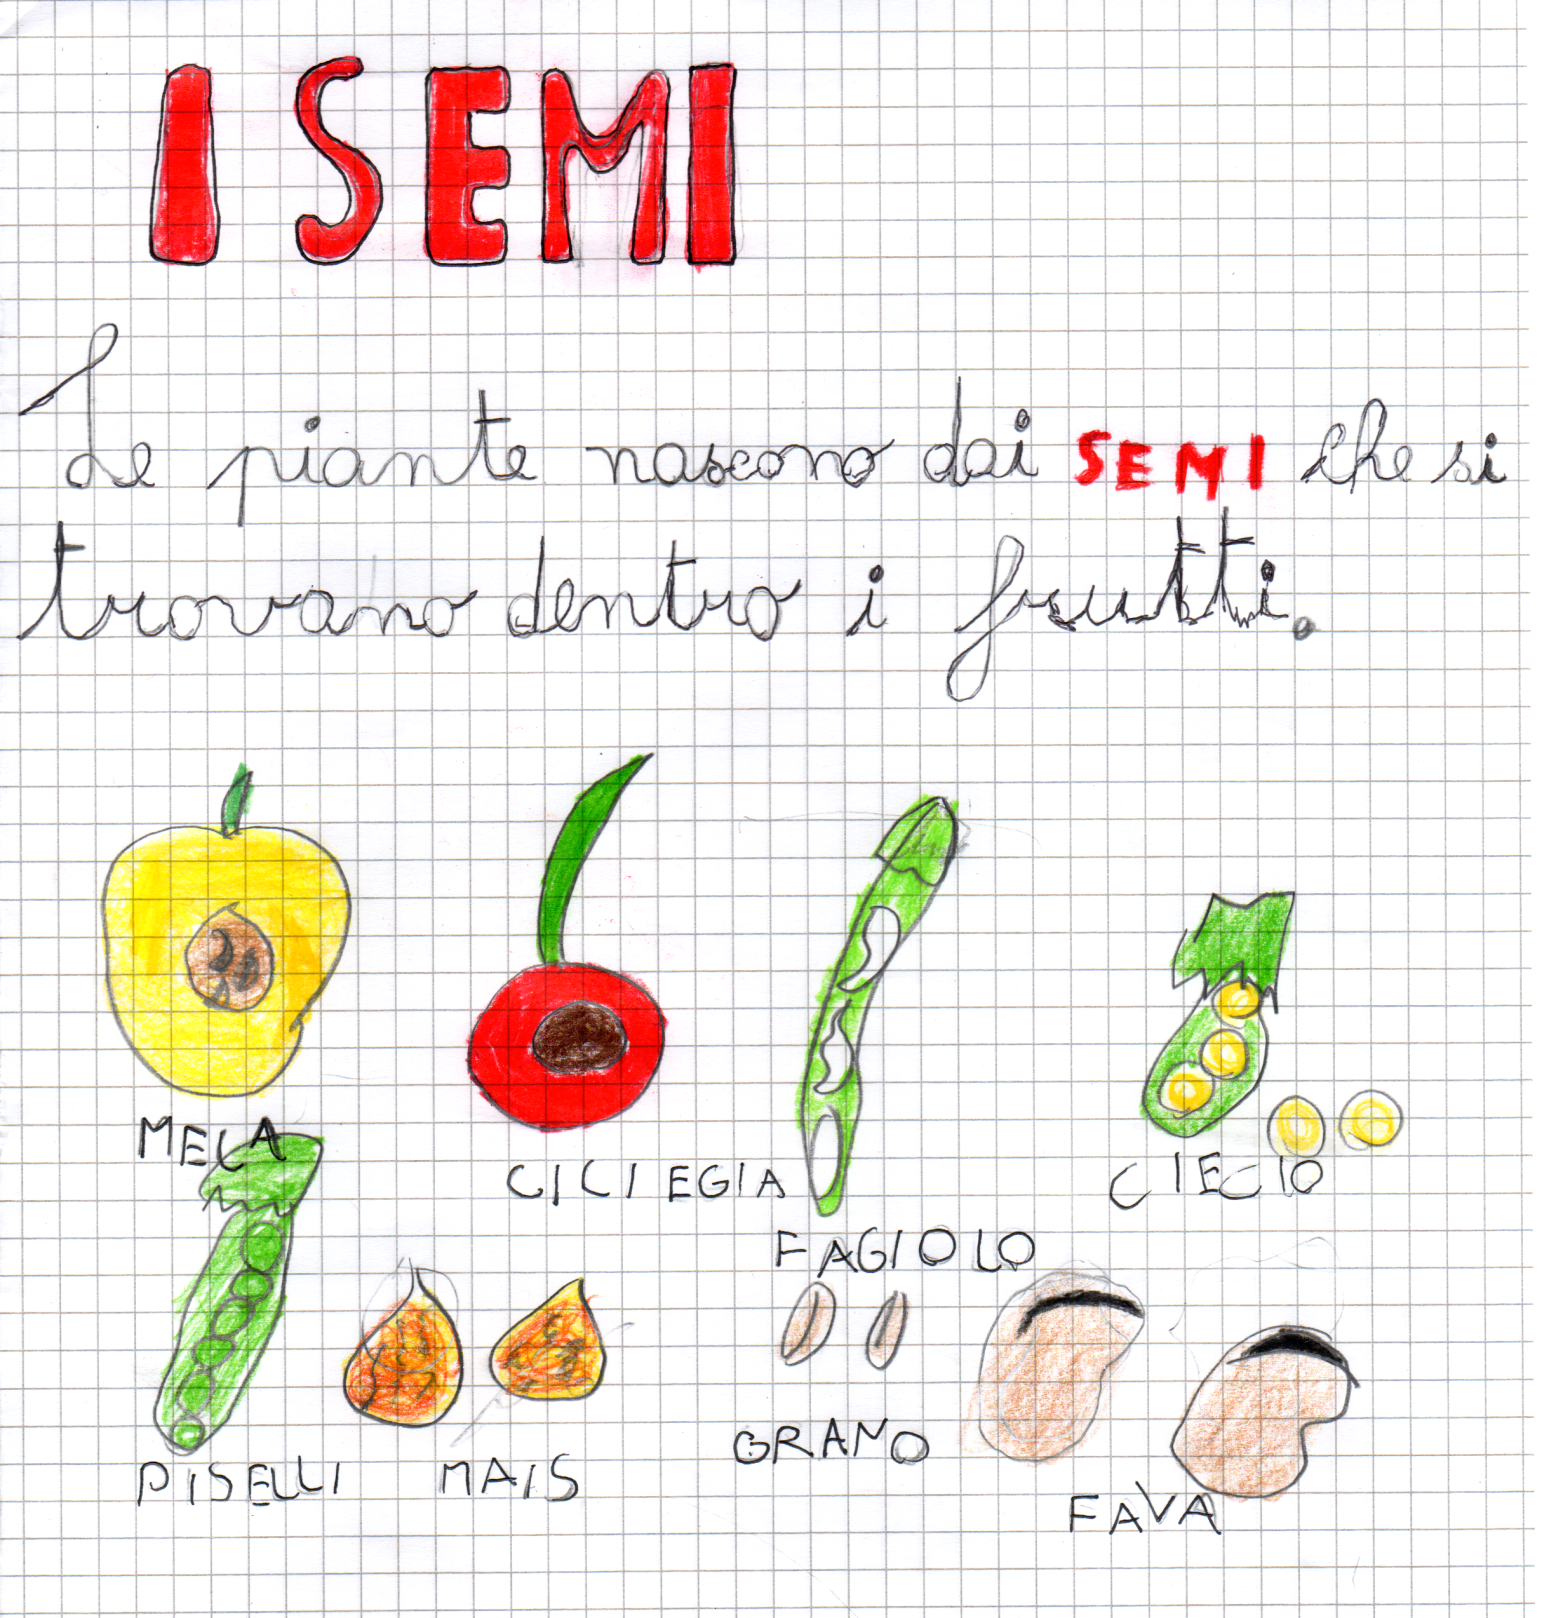 I SEMI
Le piante nascono dai SEMI che si
trovano dentro i frutti.
MELA
CICIEGIA
FAGIOLO
CIECIO
PISELLI
MAIS
GRANO
FAVA